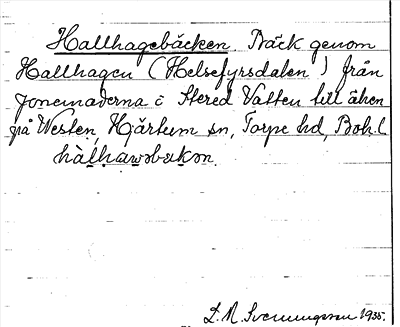 Hallhagebäcken. Bäck genom
Hallhagen (Helsefyrsdalen) från
i Stered Vatten till älven
på Westen, Hjärtum sn, Torpe hd, Boh. l.
hàlhawsbækən.
L. M. Svenungsson 1935.